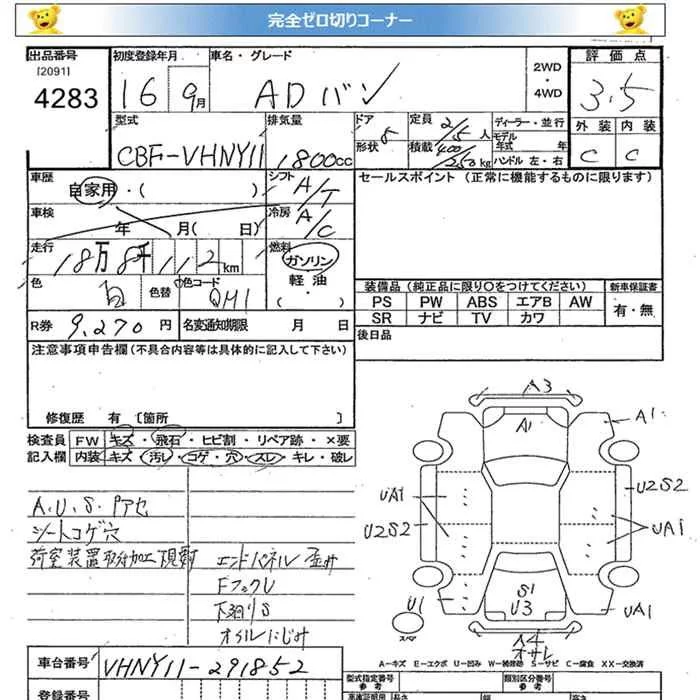 完全ゼロ切りコーナー
出品番号
[2091]
4283
初度登録年月
16 9月
車名・グレード
ADバン
2WD
・
4WD
評価点
3.5
外装 内装
C C
型式
CBF-VHNY11
排気量
1800cc
ドア 5
形状
定員 2/5人
積載 400/250kg
ディーラー・並行
モデル
年式 年
ハンドル 左・右
車歴
自家用・( )
シフト A/T
車検
年 月( 日)
冷房 A/C
走行
18万8千112km
燃料
ガソリン
軽油
・( )
色 白
色替
色コード QM1
R券 9,270円
名変通知期限 月 日
セールスポイント(正常に機能するものに限ります)
装備品(純正品に限り○をつけてください)
PS PW ABS エアB AW
SR ナビ TV カワ
新車保証書
有・無
後日品
注意事項申告欄(不具合内容等は具体的に記入して下さい)
修復歴 有 [箇所 ]
検査員
記入欄
FW キズ・飛石・ヒビ割・リペア跡・×要
内装 キズ・汚れ・コゲ・穴・スレ・キレ・破レ
A.U.S.Pアセ
シートコゲ穴
荷室装置取付加工現状
エンドパネル歪み
Fフックし
下廻りS
オイルにじみ
A3
A1
A1
UA1
U2S2
U2S2
UA1
U1
S1
U3
UA1
スペア
A4
オサレ
A-キズ E-エクボ U-凹み W-補修跡 S-サビ C-腐食 XX-交換済
車台番号
VHNY11-291852
登録番号
型式指定番号
参考
類別区分番号
参考
長さ
幅
高さ